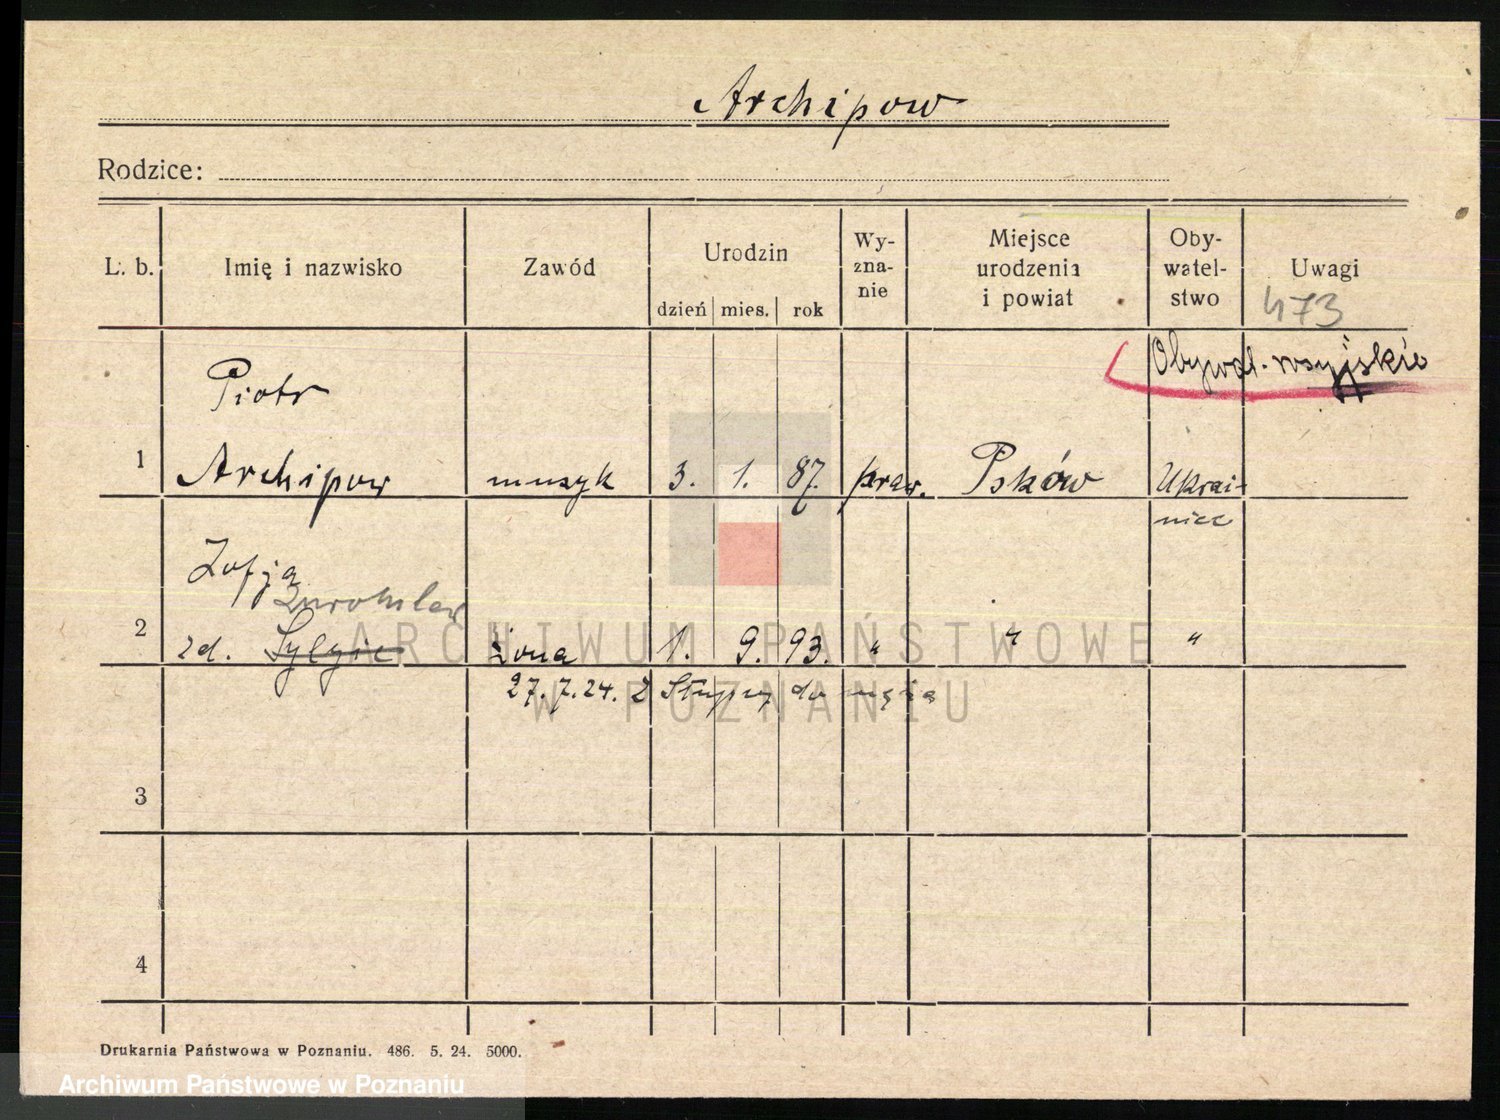 Archipow
Rodzice:
L. b. Imię i nazwisko Zawód Urodzin dzień mies. rok Wy- zna- nie Miejsce urodzenia i powiat Oby- watel- stwo Uwagi
473
Obywat. rosyjskie
Piotr
1 Archipow muzyk 3. 1. 87. praw. Psków Ukrai-
niec
Zofja
2 zd. Żona 1. 9. 93. " " "
27. 7. 24. Z Słupcy do męża
3
4
Drukarnia Państwowa w Poznaniu. 486. 5. 24. 5000.
ARCHIWUM PAŃSTWOWE
W POZNANIU
Archiwum Państwowe w Poznaniu